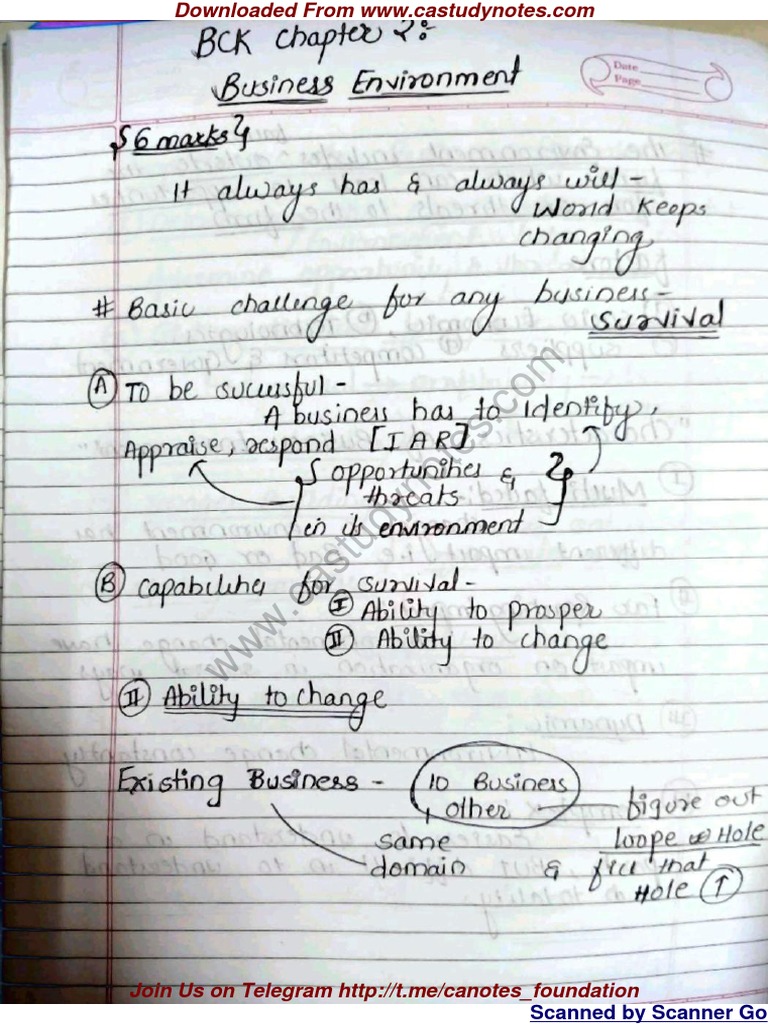 Downloaded From www.castudynotes.com
BCK Chapter 2:
Business Environment
Date
Page
{6 marks}
It always has & always will -
World keeps
changing
# Basic challenge for any business -
Survival
(A) To be successful -
A business has to Identify,
Appraise, respond [I A R]
{ opportunities & }
threats
in its environment
(B) capabilities for survival -
(I) Ability to prosper
(II) Ability to change
(II) Ability to change
Existing Business - 10 Business
+ other figure out
same loope Hole
domain & fill that
Hole (↑)
www.castudynotes.com
Join Us on Telegram http://t.me/canotes_foundation
Scanned by Scanner Go